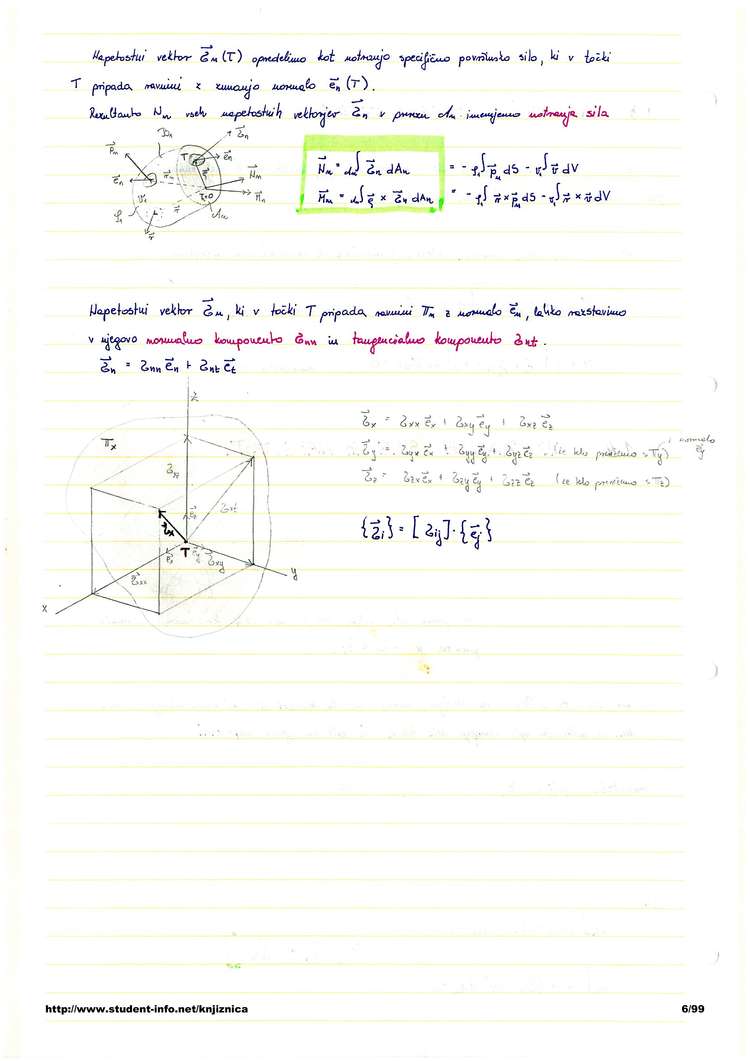 Napetostni vektor σ⃗n (T) opredelimo kot notranjo specifično površinsko silo, ki v točki
T pripada ravnini z zunanjo normalo e⃗n (T).
Rezultanto Nn vseh napetostnih vektorjev σ⃗n v prerezu An imenujemo notranja sila
N⃗n = An∫ σ⃗n dAn = - ∫ p⃗n dS - ∫ v⃗ dV
M⃗n = An∫ ρ⃗ × σ⃗n dAn = - ∫ r⃗ × p⃗n dS - ∫ r⃗ × v⃗ dV
p⃗n
σ⃗n
e⃗n
T
e⃗n
N⃗n
M⃗n
An
v⃗
Napetostni vektor σ⃗n, ki v točki T pripada ravnini πn z normalo e⃗n, lahko razstavimo
v njegovo normalno komponento σnn in tangencialno komponento σnt.
σ⃗n = σnn e⃗n + σnt e⃗t
z
πx
σxz
σxt
e⃗z
σ⃗x
T
e⃗x
e⃗y
σxy
σxx
y
x
σ⃗x = σxx e⃗x + σxy e⃗y + σxz e⃗z
σ⃗y = σyx e⃗x + σyy e⃗y + σyz e⃗z (če telo prerežemo s πy) z normalo e⃗y
σ⃗z = σzx e⃗x + σzy e⃗y + σzz e⃗z (če telo prerežemo s πz)
{σ⃗i} = [σij] · {e⃗j}
http://www.student-info.net/knjiznica
6/99